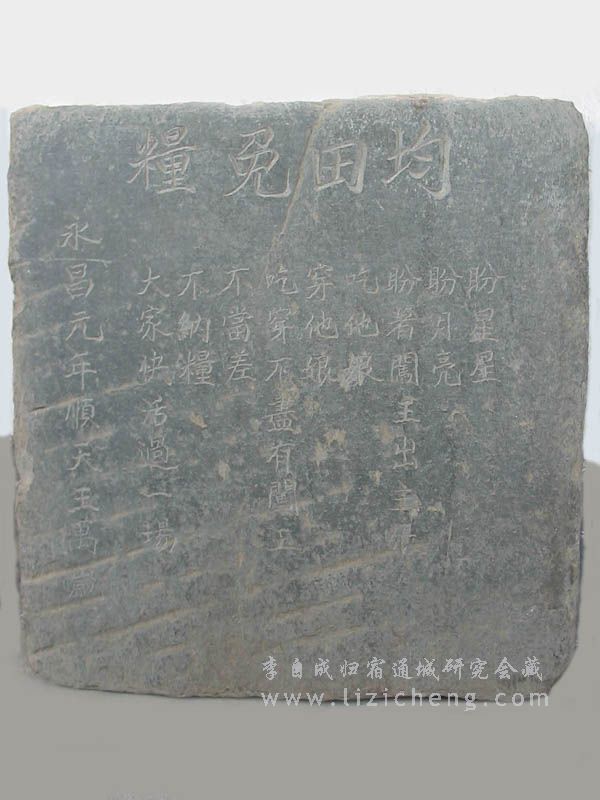 均田免糧
盼星星
盼月亮
盼著闖王出主
吃他娘
穿他娘
吃穿不盡有闖王
不當差
不納糧
大家快活過一場
永昌元年順天王萬歲
李自成归宿通城研究会藏
www.lizicheng.com